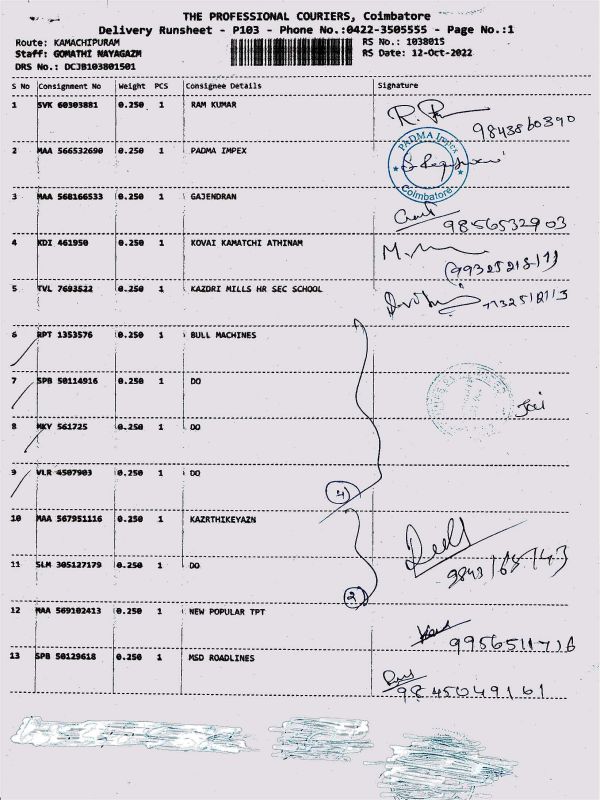 THE PROFESSIONAL COURIERS, Coimbatore
Delivery Runsheet - P103 - Phone No.:0422-3505555 - Page No.:1
Route: KAMACHIPURAM RS No.: 1038015
Staff: GOMATHI NAYAGAZM RS Date: 12-Oct-2022
DRS No.: DCJB103801501
S No Consignment No Weight PCS Consignee Details Signature
1 SVK 60303881 0.250 1 RAM KUMAR
9843860390
2 MAA 566532690 0.250 1 PADMA IMPEX PADMA Impex
Coimbatore
3 MAA 568166533 0.250 1 GAJENDRAN
9856532903
4 KDI 461950 0.250 1 KOVAI KAMATCHI ATHINAM
5 TVL 7693522 0.250 1 KAZDRI MILLS HR SEC SCHOOL
6 RPT 1353576 0.250 1 BULL MACHINES
7 SPB 50114916 0.250 1 DO
Jai
8 MKY 561725 0.250 1 DO
9 VLR 4507903 0.250 1 DO
4
10 MAA 567951116 0.250 1 KAZRTHIKEYAZN
11 SLM 305127179 0.250 1 DO
2
12 MAA 569102413 0.250 1 NEW POPULAR TPT
9956511716
13 SPB 50129618 0.250 1 MSD ROADLINES
9845049161